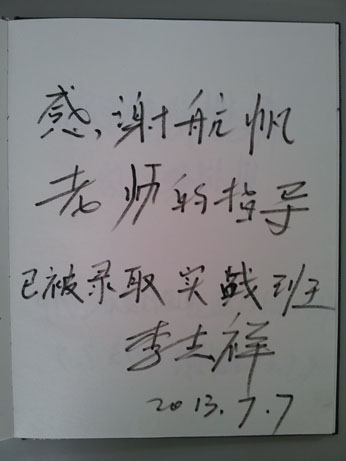 感谢航帆
老师的指导
已被录取实战班
李志祥
2013.7.7